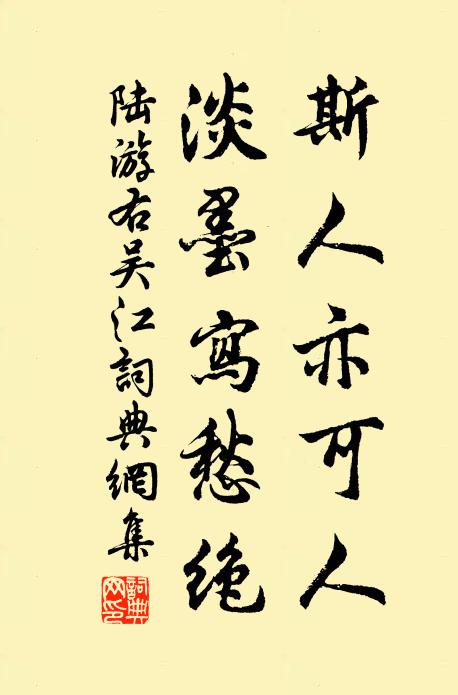 斯人亦可人
淡墨寫愁絶
陆游右吴江詞典網集
詞典